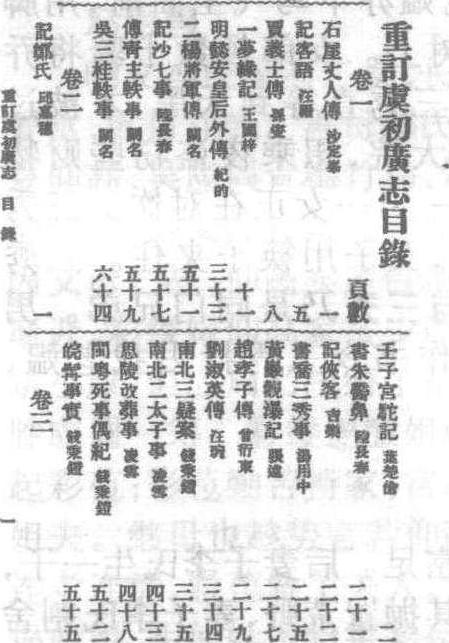 重訂虞初廣志目錄
卷一
頁數
石屋丈人傳 沙定峯 一
記客語 汪縉 五
賈義士傳 孫堂 八
一夢緣記 王國梓 十一
明懿安皇后外傳 紀昀 三十三
二楊將軍傳 闕名 五十一
記沙七事 陸長春 五十七
傅青主軼事 闕名 五十九
吳三桂軼事 闕名 六十四
卷二
記鄭氏 邱嘉穗 一
壬子宮駝記 葉楚傖 二
書朱醫鼻 陸長春 二十一
記俠客 吉樂 二十二
書喬三秀事 湯用中 二十五
黃巖觀瀑記 張遠 二十七
趙孝子傳 曾衍東 二十九
劉淑英傳 汪琬 三十四
南北三疑案 錢秉鐙 三十五
南北二太子事 凌雪 四十三
思陵改葬事 凌雪 四十八
閩粵死事偶紀 錢秉鐙 五十二
皖髯事實 錢秉鐙 五十五
卷三
重訂虞初廣志 目錄
一